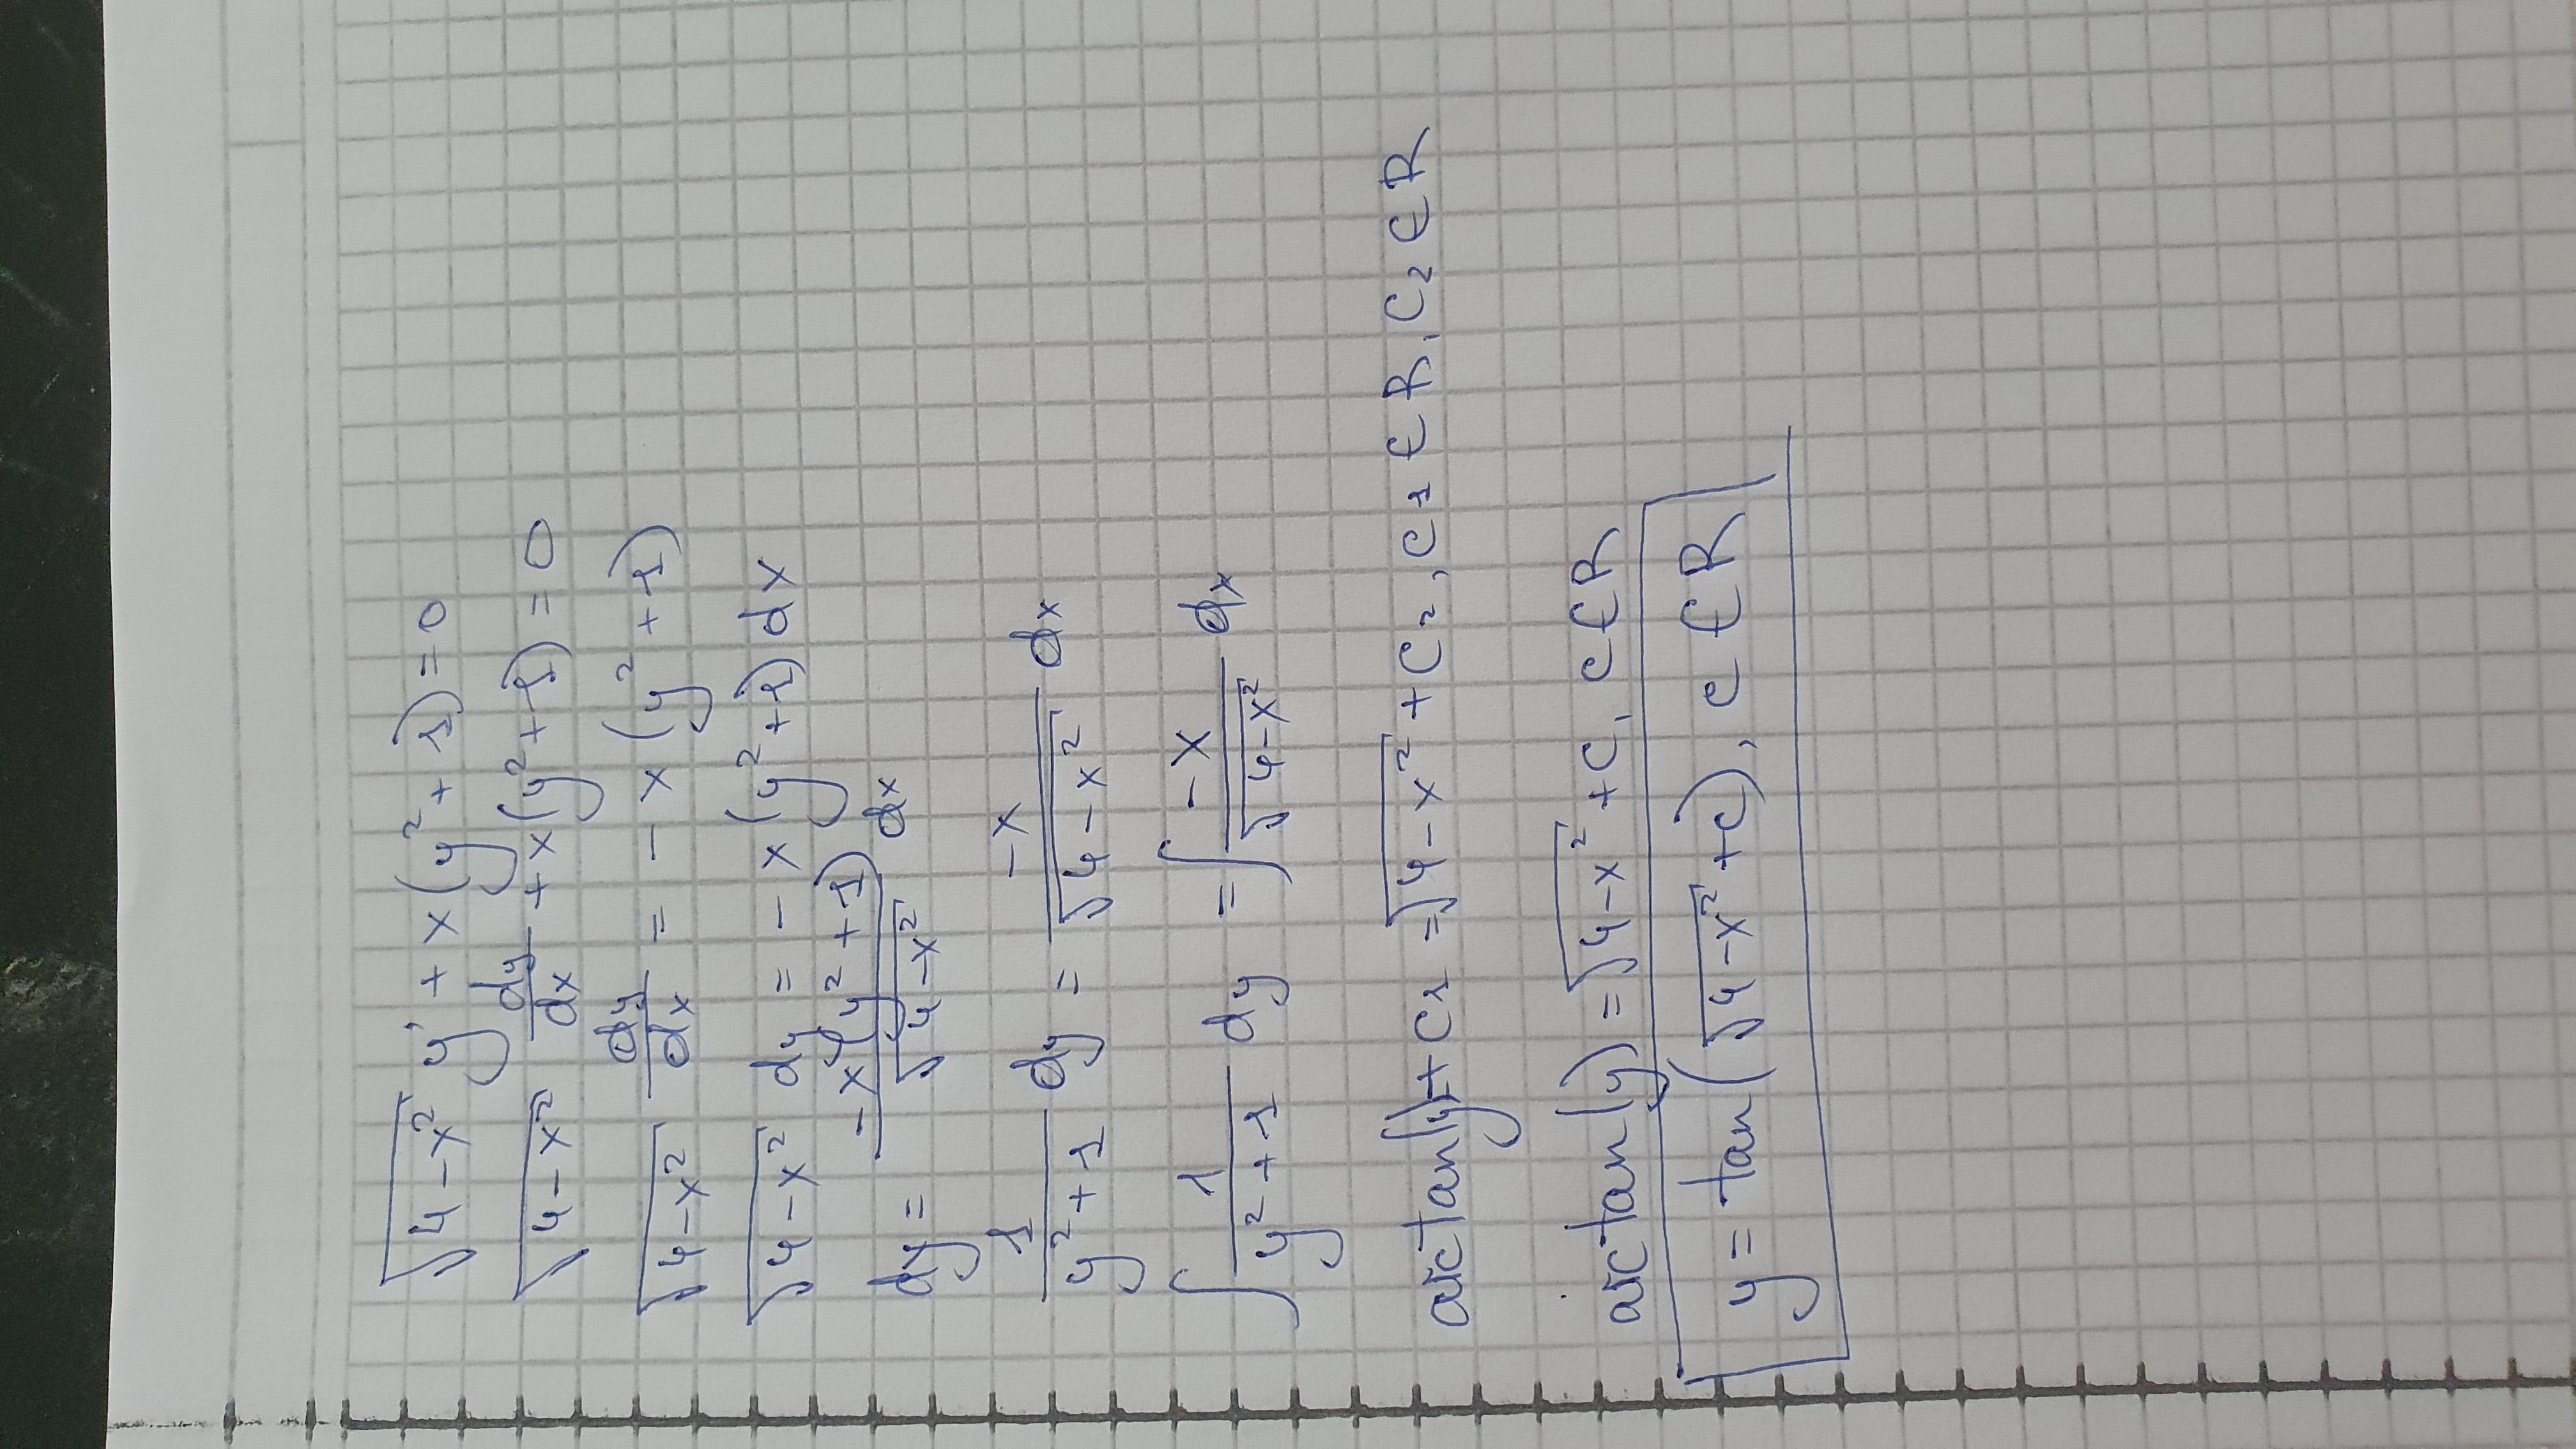 √(4-x²) y' + x(y²+1) = 0
√(4-x²) dy/dx + x(y²+1) = 0
√(4-x²) dy/dx = -x(y²+1)
√(4-x²) dy = -x(y²+1)dx
dy = -x(y²+1)/√(4-x²) dx
1/(y²+1) dy = -x/√(4-x²) dx
∫ 1/(y²+1) dy = ∫ -x/√(4-x²) dx
arctan(y)+C₁ = √(4-x²) + C₂, C₁ ∈ R, C₂ ∈ R
arctan(y) = √(4-x²) + C, C ∈ R
y = tan(√(4-x²) + C), C ∈ R